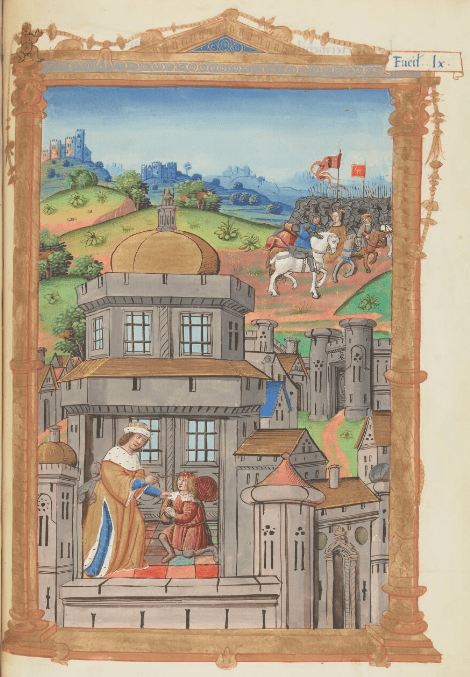 Fueil. lx.